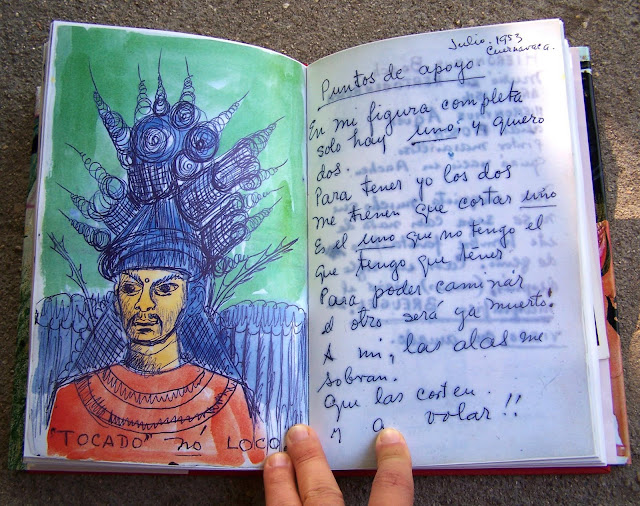 "TOCADO" nó LOCO.
Julio. 1953
Cuernavaca.
Puntos de apoyo.
En mi figura completa
solo hay uno; y quiero
dos.
Para tener yo los dos
me tienen que cortar uno
Es el uno que no tengo el
que tengo que tener
Para poder caminar
el otro será ya muerto!
A mi, las alas me
sobran.
Que las corten
y a volar!!